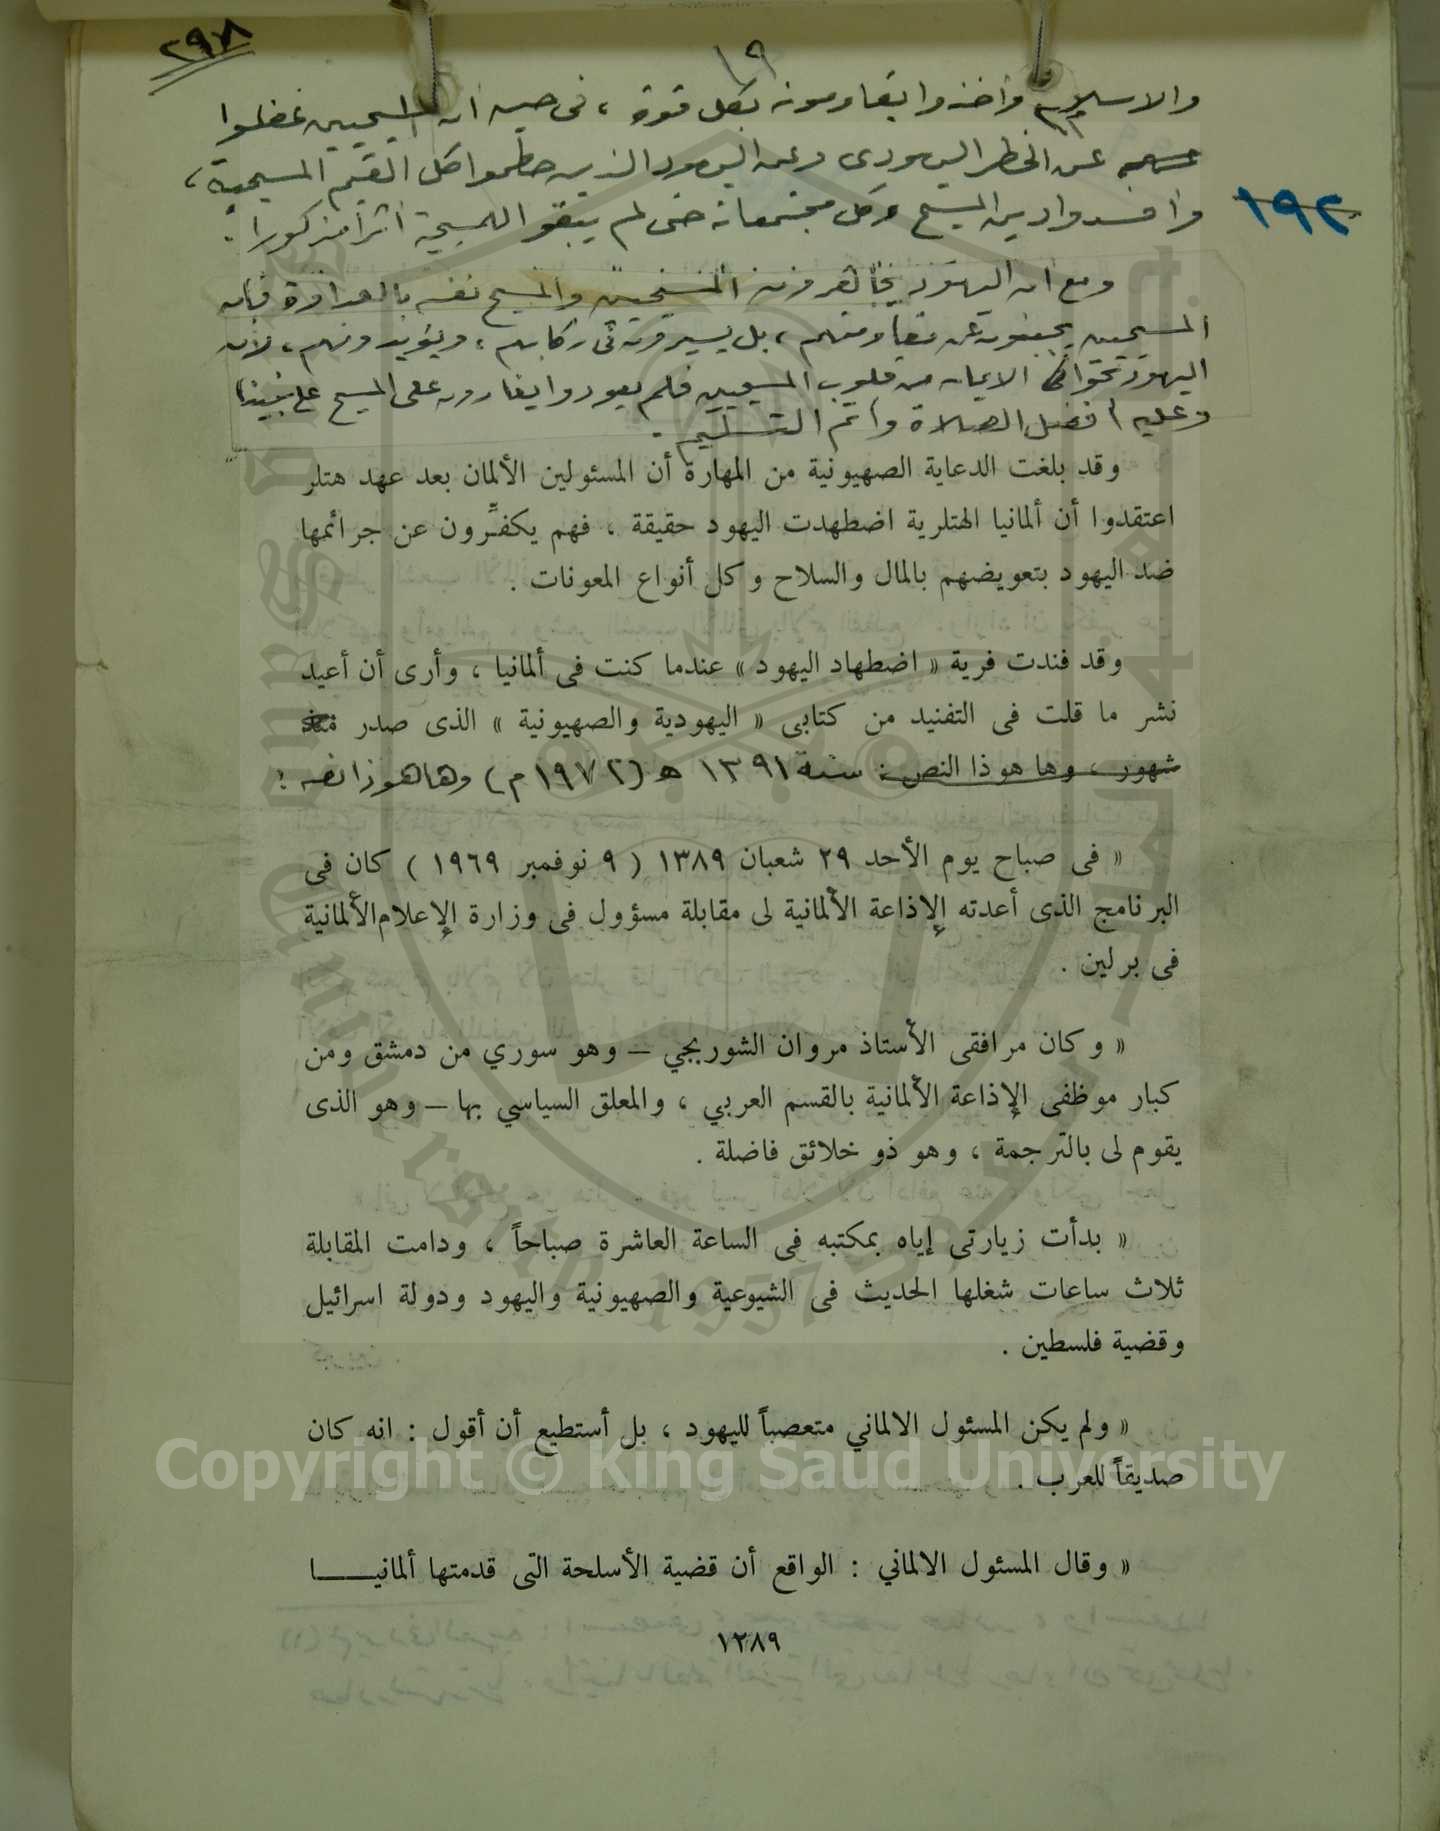 ٢٩٨
١٩
والاسلام وأخذوا يقاومونه بكل قوة ، فى حين أن المسيحيين غفلوا
عن الخطر اليهودى وعن اليهود الذين حطموا كل القيم المسيحية ،
وأفسدوا دين المسيح وكل مجتمعاته حتى لم يبقوا للمسيحية أثرا مذكورا .
١٩٢
ومع أن اليهود المسيحيين والمسيح نفسه بالعداوة فإن
المسيحيين عن مقاومتهم ، بل يسيرون فى ركابهم ، ويؤيدونهم ، لأن
اليهود الايمان من قلوب المسيحيين فلم يعودوا يغارون على المسيح على نبينا
وعليه أفضل الصلاة وأتم التسليم .
وقد بلغت الدعاية الصهيونية من المهارة أن المسئولين الألمان بعد عهد هتلر
اعتقدوا أن ألمانيا الهتلرية اضطهدت اليهود حقيقة ، فهم يكفِّرون عن جرائمها
ضد اليهود بتعويضهم بالمال والسلاح وكل أنواع المعونات .
وقد فندت فرية « اضطهاد اليهود » عندما كنت فى ألمانيا ، وأرى أن أعيد
نشر ما قلت فى التفنيد من كتابى « اليهودية والصهيونية » الذى صدر منذ
شهور ، وها هو ذا النص : سنة ١٣٩١ هـ (١٩٧٢ م) وها هو ذا نصه :
« فى صباح يوم الأحد ٢٩ شعبان ١٣٨٩ ( ٩ نوفمبر ١٩٦٩ ) كان فى
البرنامج الذى أعدته الإذاعة الألمانية لى مقابلة مسؤول فى وزارة الإعلام الألمانية
فى برلين .
« وكان مرافقى الأستاذ مروان الشوربجي – وهو سوري من دمشق ومن
كبار موظفى الإذاعة الألمانية بالقسم العربي ، والمعلق السياسي بها – وهو الذى
يقوم لى بالترجمة ، وهو ذو خلائق فاضلة .
« بدأت زيارتى إياه بمكتبه فى الساعة العاشرة صباحاً ، ودامت المقابلة
ثلاث ساعات شغلها الحديث فى الشيوعية والصهيونية واليهود ودولة اسرائيل
وقضية فلسطين .
« ولم يكن المسئول الالماني متعصباً لليهود ، بل أستطيع أن أقول : انه كان
صديقاً للعرب .
Copyright © King Saud University
« وقال المسئول الالماني : الواقع أن قضية الأسلحة التى قدمتها ألمانيـــــا
١٢٨٩